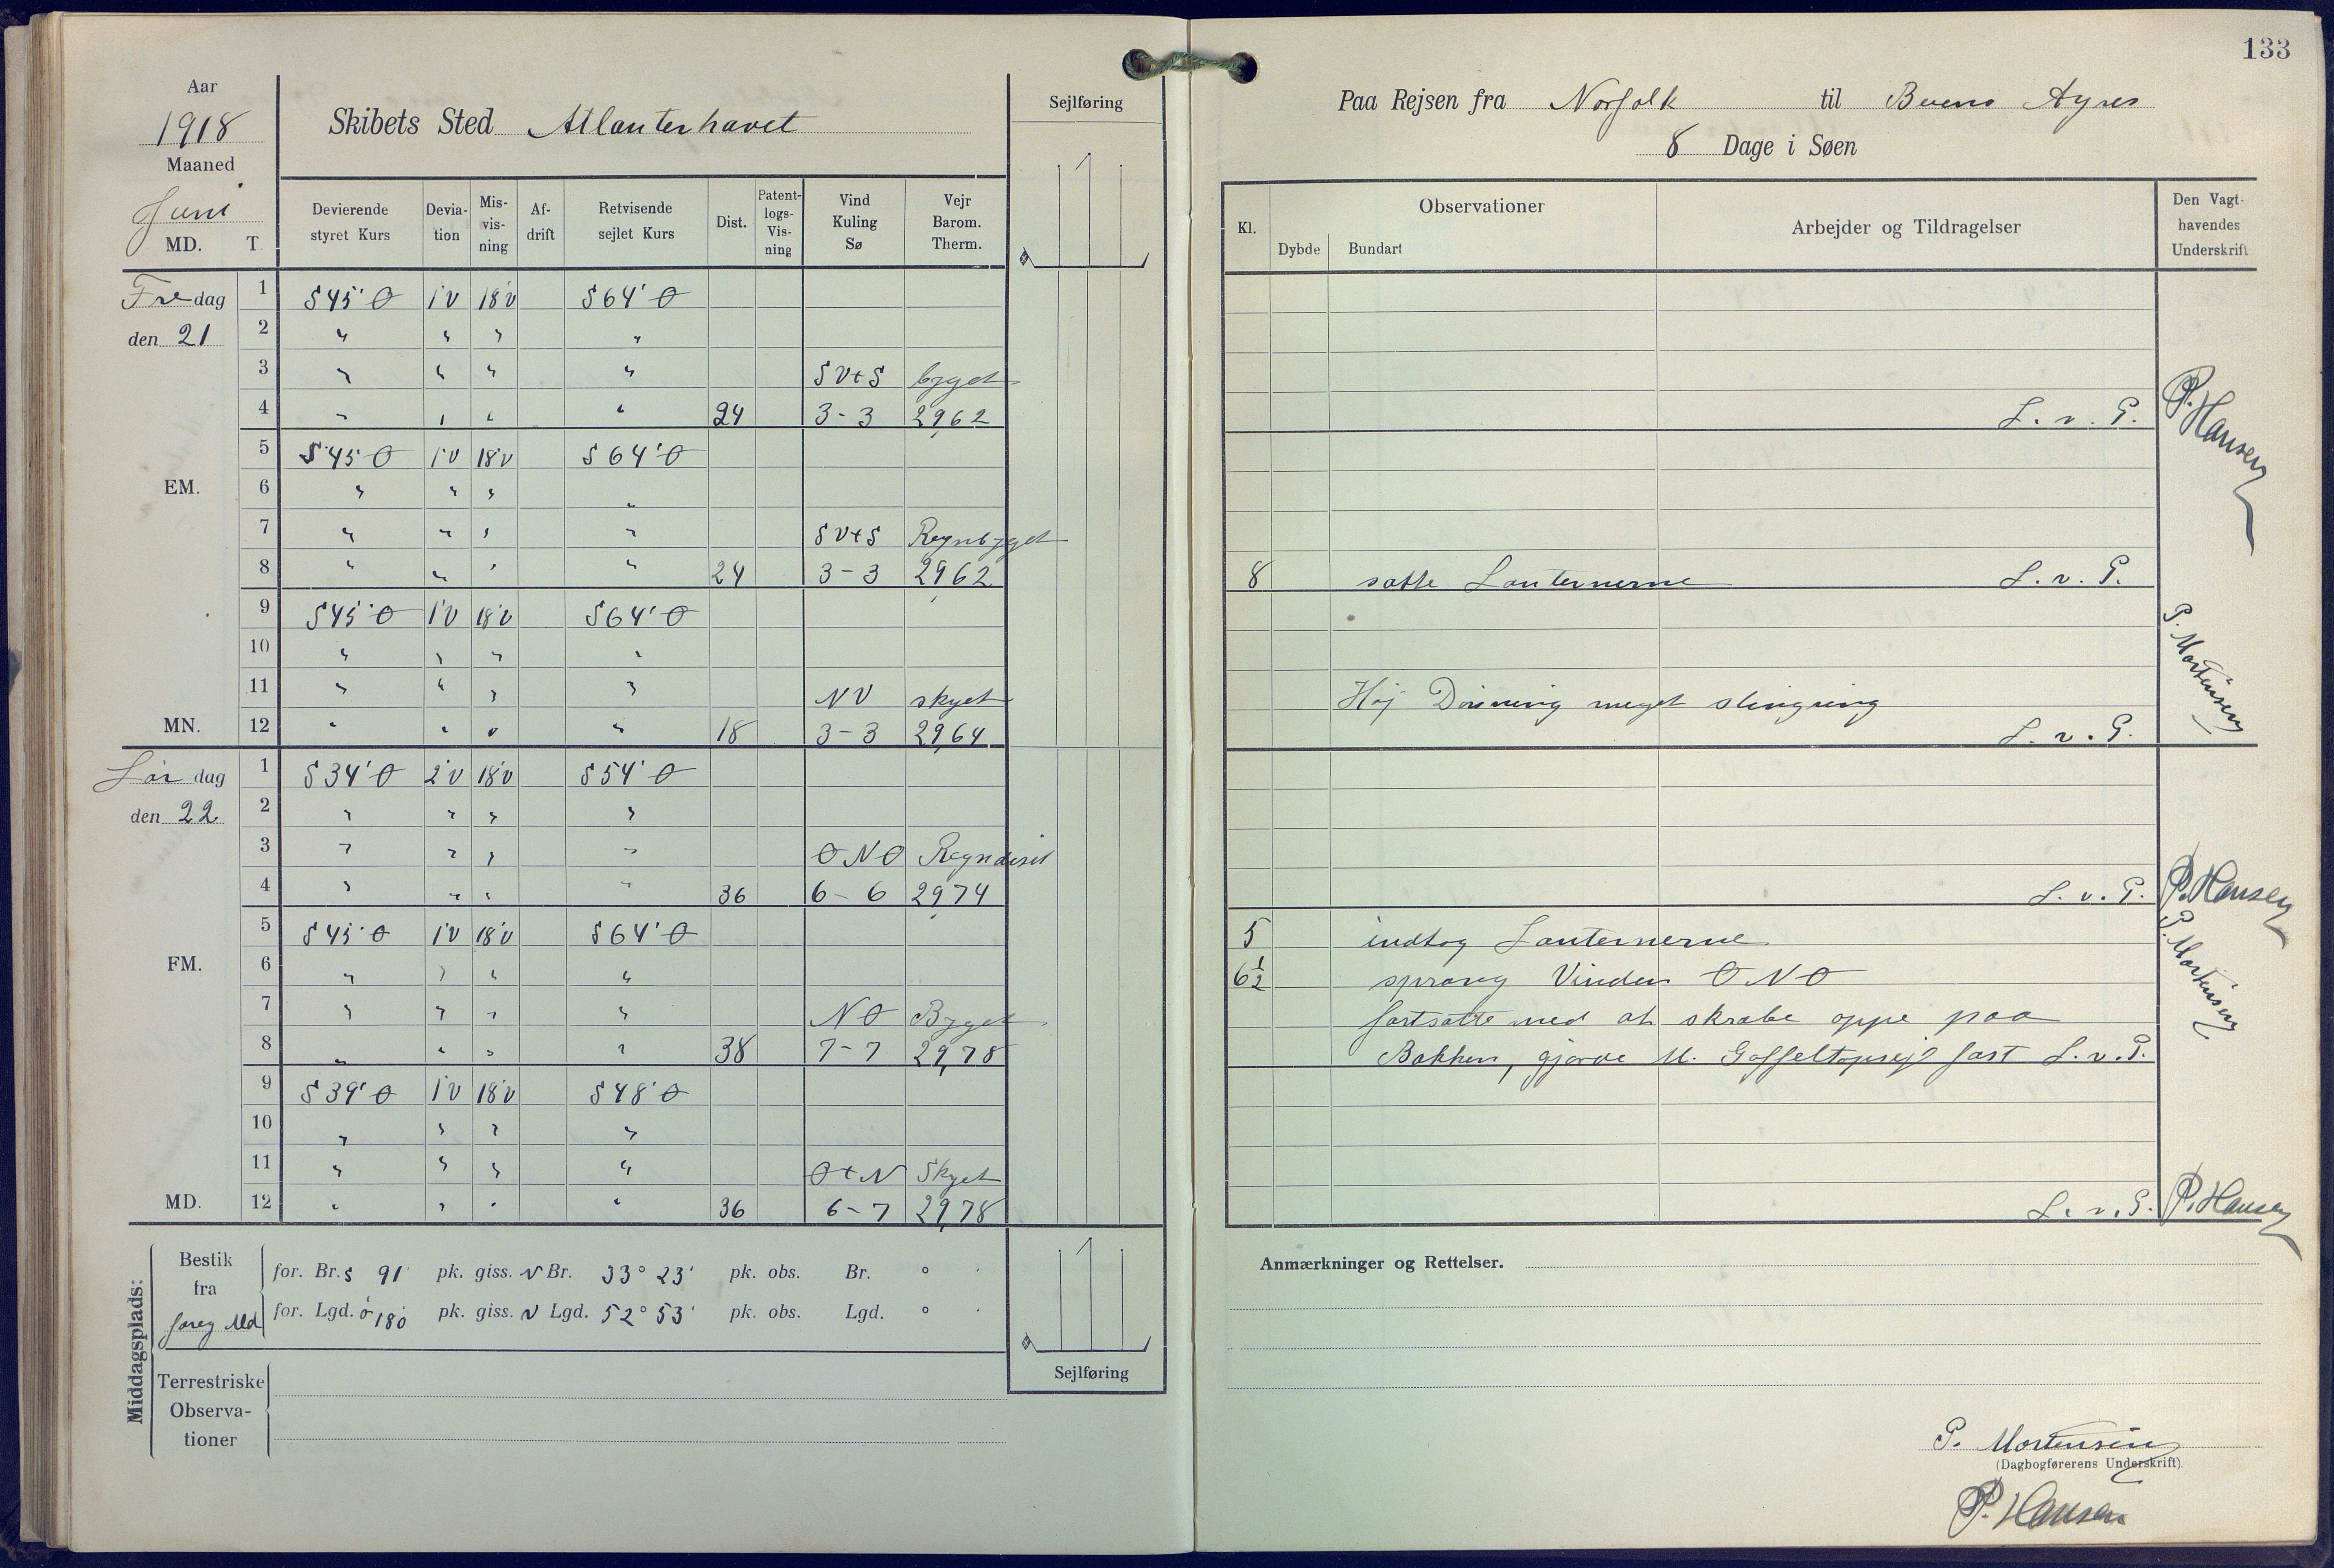 Aar
1918
Maaned
Juni
MD. T.
Skibets Sted Atlanterhavet
Sejlføring
Devierende styret Kurs | Deviation | Misvisning | Afdrift | Retvisende sejlet Kurs | Dist. | Patentlogs-Visning | Vind Kuling Sø | Vejr Barom. Therm.
Fredag 1 S45°O 1°V 18°V S64°O
den 21 2 " " " "
3 " " " " SVtS byget
4 " " " " 24 3-3 29,62
5 S45°O 1°V 18°V S64°O
EM. 6 " " " "
7 " " " " SVtS Regnbyget
8 " " " " 24 3-3 29,62
9 S45°O 1°V 18°V S64°O
10 " " " "
11 " " " " NV skyet
MN. 12 " " " " 18 3-3 29,64
Lørdag 1 S34°O 2°V 18°V S54°O
den 22 2 " " " "
3 " " " " ONO Regndiset
4 " " " " 36 6-6 29,74
5 S45°O 1°V 18°V S64°O
FM. 6 " " " "
7 " " " " NO Byget
8 " " " " 38 7-7 29,78
9 S39°O 1°V 18°V S48°O
10 " " " "
11 " " " " OtN Skyet
MD. 12 " " " " 36 6-7 29,78
Middagsplads:
Bestik fra foreg Md
for. Br. S 91' pk. giss. N Br. 33° 23' pk. obs. Br. ° '
for. Lgd. O 180' pk. giss. V Lgd. 52° 53' pk. obs. Lgd. ° '
Terrestriske Observationer
Sejlføring
133
Paa Rejsen fra Norfolk til Bueno Ayres
8 Dage i Søen
Kl. | Observationer | Dybde | Bundart | Arbejder og Tildragelser | Den Vagthavendes Underskrift
L. v. P. P. Hansen
8 satte Lanternerne L. v. P.
P. Mortensen
Høj Dønning meget slingring
L. v. P.
L. v. P. P. Hansen
5 indtog Lanternerne
6½ sprang Vinden ONO
P. Mortensen
fortsatte med at skrabe oppe paa
Bakken, gjorde M. Gaffeltopsejl fast L. v. P.
L. v. P. P. Hansen
Anmærkninger og Rettelser.
P. Mortensen
(Dagbogførerens Underskrift).
P. Hansen